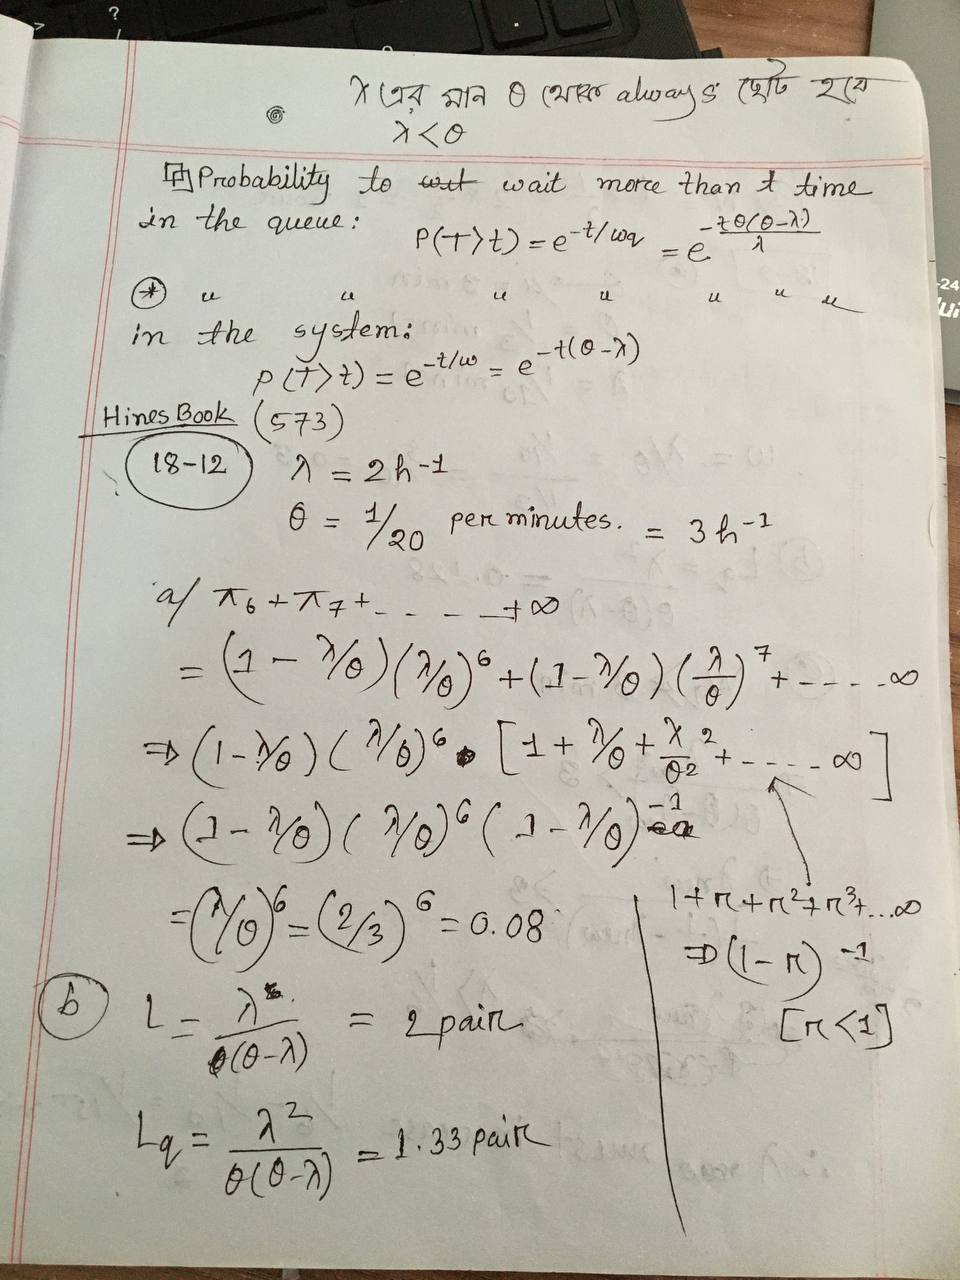 λ এর মান θ থেকে always ছোট হবে
λ < θ
Probability to wait more than t time
in the queue:
P(T>t) = e^{-t/wq} = e^{-tθ(θ-λ)/λ}
* " " " " " " "
in the system:
P(T>t) = e^{-t/w} = e^{-t(θ-λ)}
Hines Book (573)
18-12 λ = 2h^{-1}
θ = 1/20 per minutes. = 3h^{-1}
a/ π₆ + π₇ + - - - - + ∞
= (1 - λ/θ)(λ/θ)^6 + (1 - λ/θ)(λ/θ)^7 + - - - - ∞
⇒ (1-λ/θ)(λ/θ)^6 [1 + λ/θ + λ^2/θ^2 + - - - - ∞]
⇒ (1 - λ/θ)(λ/θ)^6 (1 - λ/θ)^{-1}
= (λ/θ)^6 = (2/3)^6 = 0.08
1 + r + r^2 + r^3 + ... ∞
⇒ (1 - r)^{-1}
[r < 1]
b L = λ/(θ-λ) = 2 pair
Lq = λ^2/θ(θ-λ) = 1.33 pair
-24